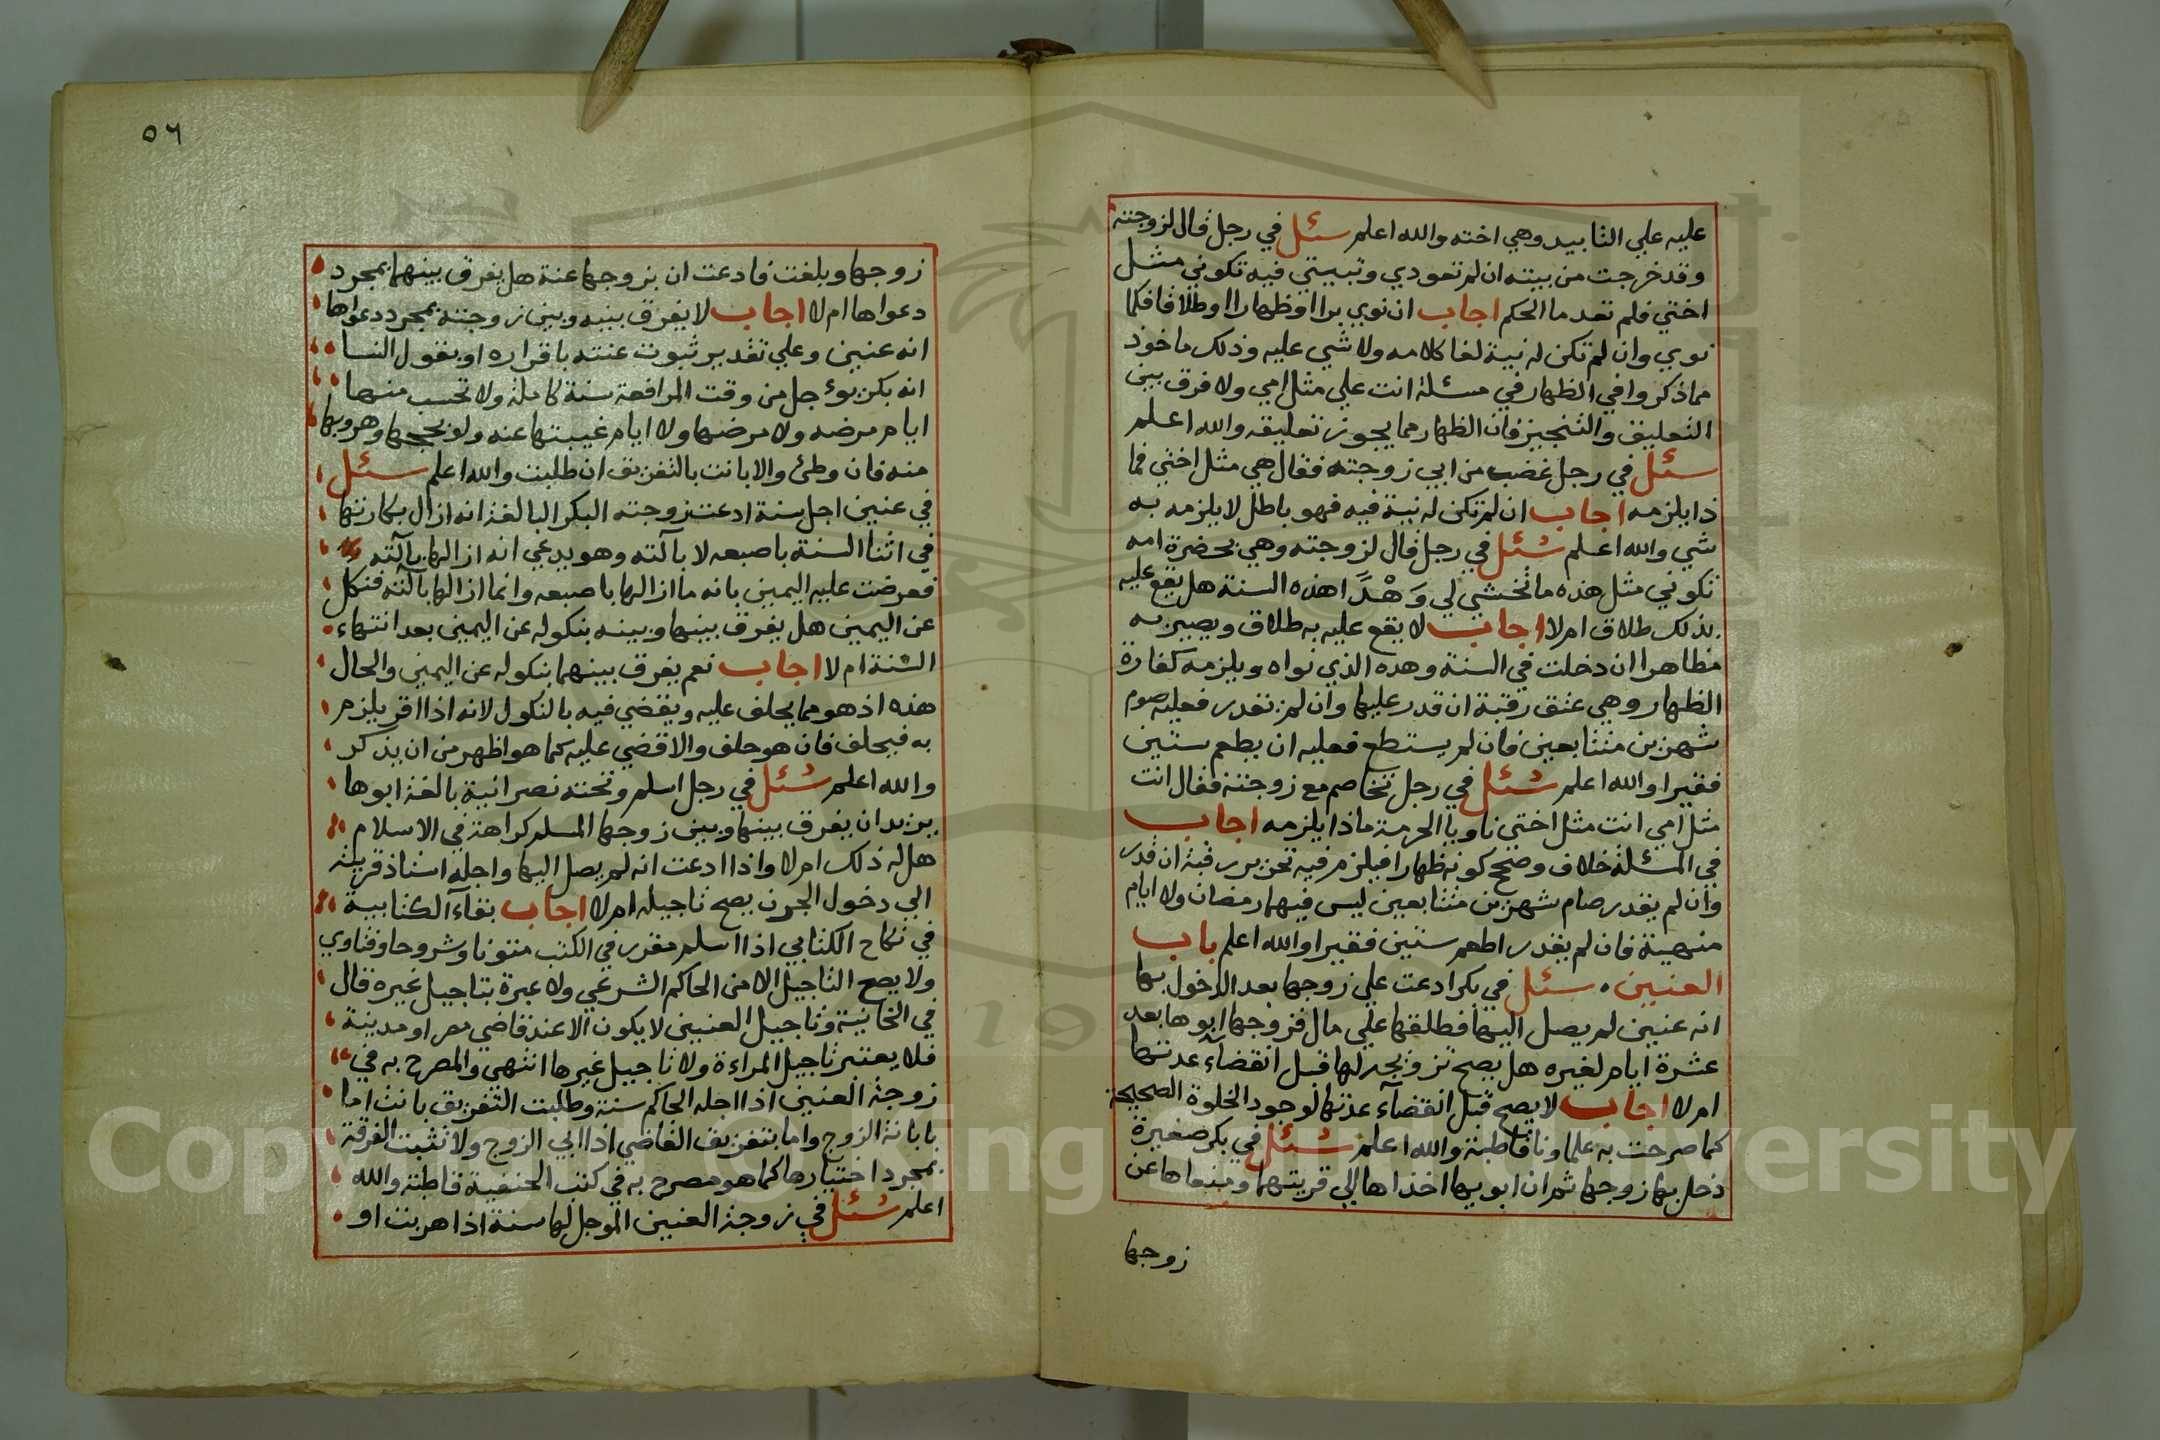 عليه علي التابيد وهي اخته والله اعلم سئل في رجل قال لزوجته
وقد خرجت من بيته ان لم تعودي وتبيتي فيه تكوني مثل
اختي فلم تعد ما الحكم اجاب ان نوي برا او ظهارا او طلاقا فكما
نوي وان لم تكن له نية لغا كلامه ولا شي عليه وذلك ماخوذ
مما ذكروا في الظهار في مسئلة انت علي مثل امي ولا فرق بين
التعليق والتنجيز فان الظهار مما يجوز تعليقه والله اعلم
سئل في رجل غضب من ابي زوجته فقال هي مثل اختي فما
ذا يلزمه اجاب ان لم تكن له نية فيه فهو باطل لا يلزمه به
شي والله اعلم سُئل في رجل قال لزوجته وهي بحضرة امه
تكوني مثل هذه ما تخشي لي وَهْذَا هذه السنة هل يقع عليه
بذلك طلاق ام لا اجاب لا يقع عليه به طلاق ويصير به
مظاهرا ان دخلت في السنة وهذه الذي نواه ويلزمه كفارة
الظهار وهي عتق رقبة ان قدر عليها وان لم تقدر فعليه صوم
شهرين متتابعين فان لم يستطع فعليه ان يطعم ستين
فقيرا والله اعلم سُئل في رجل تخاصم مع زوجته فقال انت
مثل امي انت مثل اختي ناويا الحرمة ماذا يلزمه اجاب
في المسئلة خلاف وصحح كونه ظهارا فيلزم فيه تحرير رقبة ان قدر
وان لم يقدر صام شهرين متتابعين ليس فيهما رمضان ولا ايام
منهية فان لم يقدر اطعم ستين فقيرا والله اعلم باب
العنين . سئل في بكر ادعت علي زوجها بعد الدخول بها
انه عنين لم يصل اليها فطلقها علي مال فزوجها ابوها بعد
عشرة ايام لغيره هل يصح تزويجه لها قبل انقضاء عدتها
ام لا اجاب لا يصح قبل انقضآء عدتها لوجود الخلوة الصحيحة
كما صرحت به علماونا قاطبة والله اعلم سُئل في بكر صغيرة
دخل بها زوجها ثم ان ابويها اخذاها الي قريتهما ومنعاها عن
زوجها
٥٦
زوجها وبلغت فادعت ان بزوجها عنة هل يفرق بينهما بمجرد
دعواها ام لا اجاب لا يفرق بينه وبين زوجته بمجرد دعواها
انه عنين وعلي تقدير ثبوت عنته باقراره او بقول النسا
انه بكر يؤجل من وقت المرافعة سنة كاملة ولا تحسب منها
ايام مرضه ولا مرضها ولا ايام غيبتها عنه ولو بحجها وهروبها
منه فان وطئ والا بانت بالتفريق ان طلبت والله اعلم سئل
في عنين اجل سنة ادعت زوجته البكر البالغة انه ازال بكارتها
في اثنا السنة باصبعه لا بآلته وهو يدعي انه ازالها بآلته
فعرضت عليه اليمين بانه ما ازالها باصبعه وانما ازالها بآلته فنكل
عن اليمين هل يفرق بينها وبينه بنكوله عن اليمين بعد انتهاء
السنة ام لا اجاب نعم يفرق بينهما بنكوله عن اليمين والحال
هذه اذ هو مما يحلف عليه ويقضي فيه بالنكول لانه اذا اقر يلزم
به فيحلف فان هو حلف والا قضي عليه كما هو اظهر من ان يذكر
والله اعلم سُئل في رجل اسلم وتحته نصرانية بالغة ابوها
يريد ان يفرق بينها وبين زوجها المسلم كراهة في الاسلام
هل له ذلك ام لا واذا ادعت انه لم يصل اليها واجله استاذ قريته
الي دخول الجرن يصح تاجيله ام لا اجاب بقآء الكتابية
في نكاح الكتابي اذا اسلم مقرر في الكتب متونا وشروحا وفتاوي
ولا يصح التاجيل الا من الحاكم الشرعي ولا عبرة بتاجيل غيره قال
في الخانية وتاجيل العنين لا يكون الا عند قاضي مصر او مدينة
فلا يعتبر تاجيل المراءة ولا تاجيل غيرها انتهي والمصرح به في
زوجة العنين اذا اجله الحاكم سنة وطلبت التفريق بانت اما
بابانة الزوج واما بتفريق القاضي اذا ابي الزوج ولا تثبت الفرقة
بمجرد اختيارها كما هو مصرح به في كتب الحنفية قاطبة والله
اعلم سُئل في زوجة العنين الموجل لها سنة اذا هربت او
Copyright © King Saud University